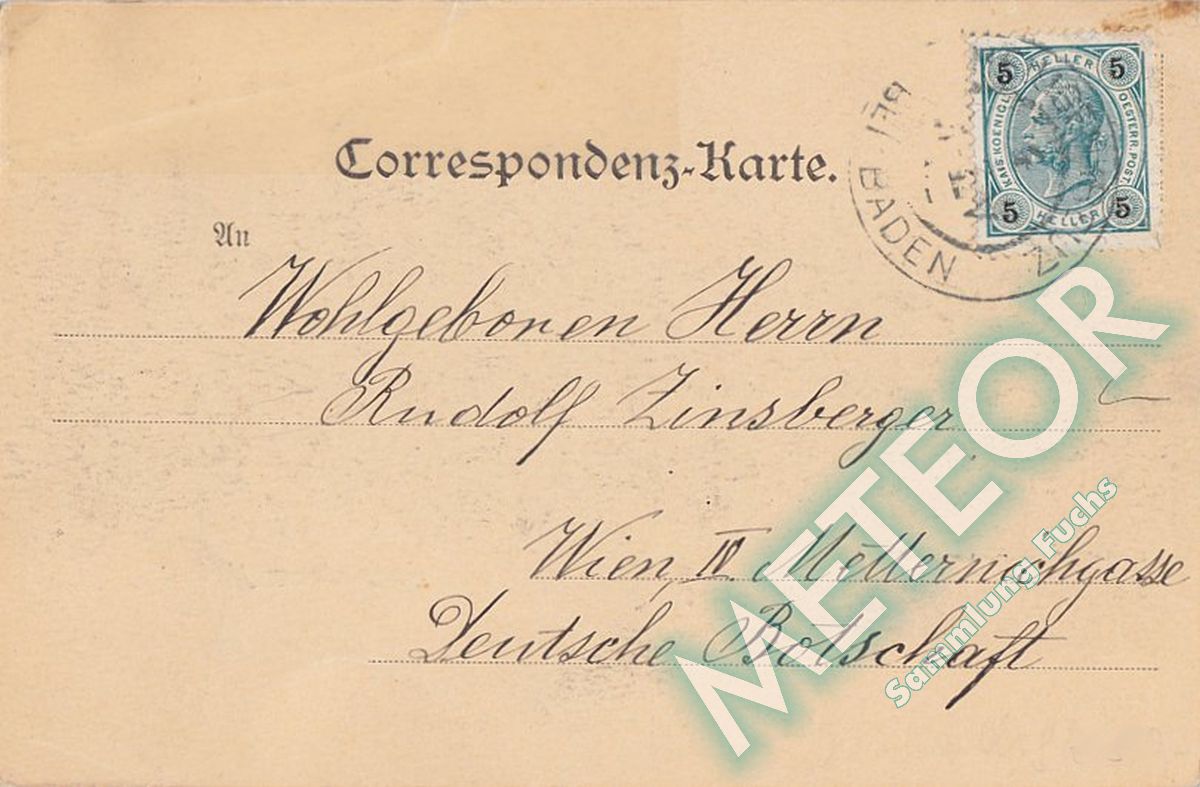 Correspondenz-Karte.
5 HELLER 5
KAIS. KOENIGL. OESTERR. POST.
5 HELLER 5
BEI BADEN
An
Wohlgeboren Herrn
Rudolf Zinsberger
Wien, IV. Metternichgasse
Deutsche Botschaft
METEOR
Sammlung Fuchs